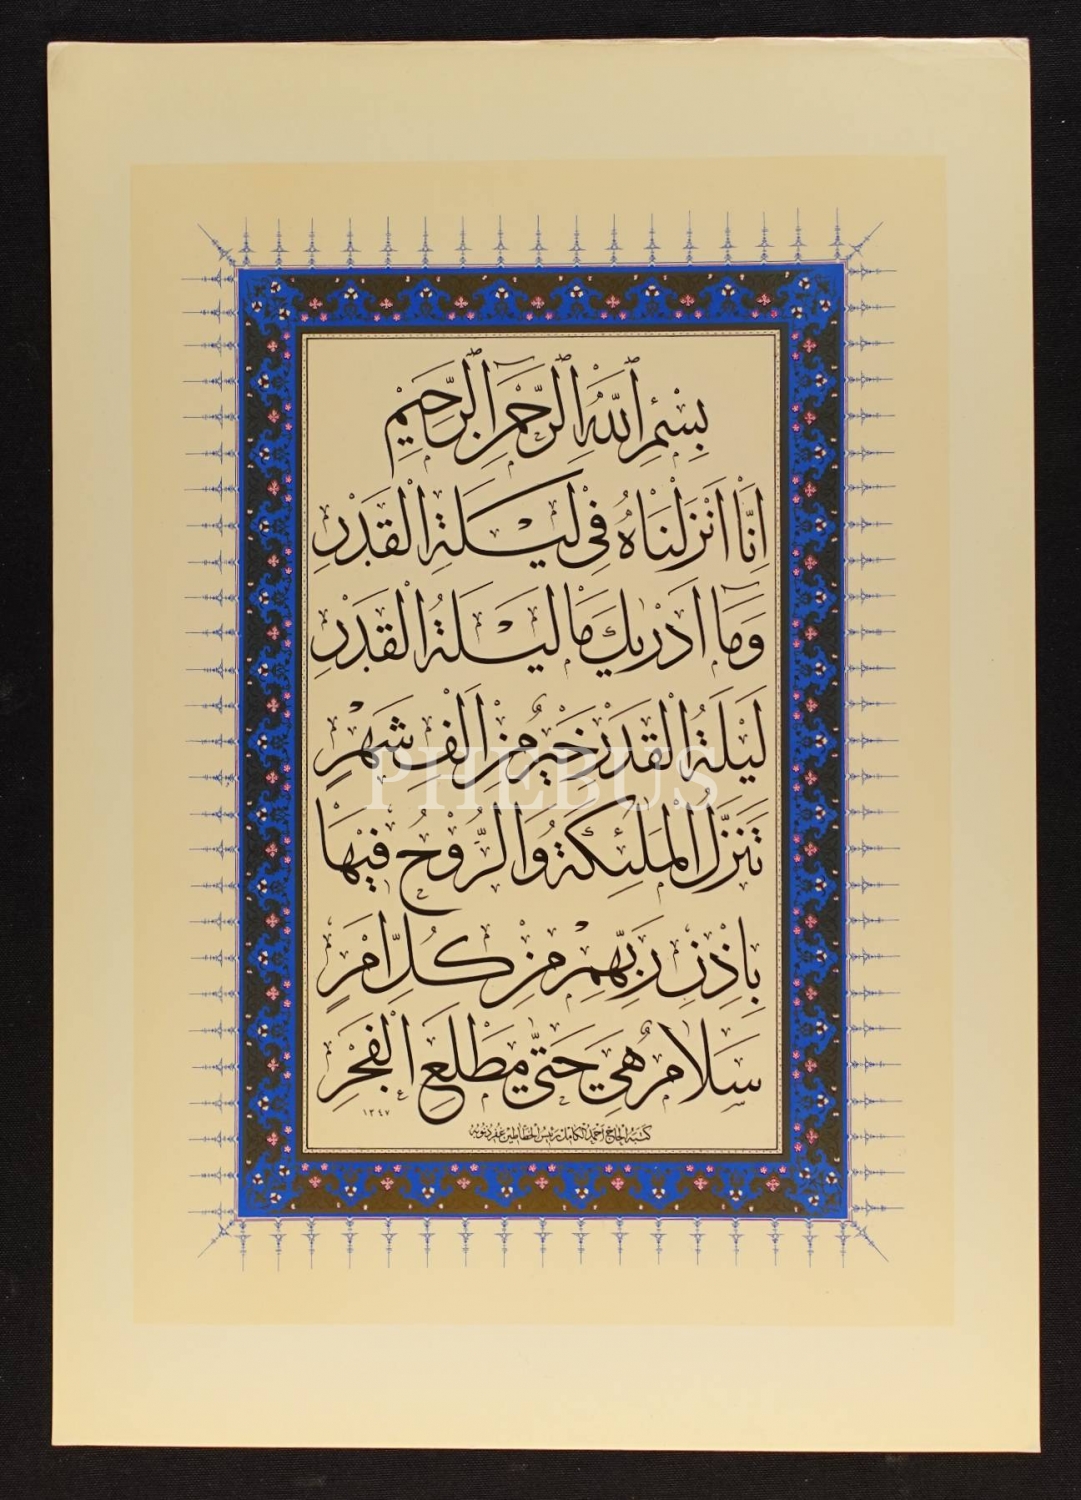 بِسْمِ اللّٰهِ الرَّحْمٰنِ الرَّحِيْمِ
اِنَّا اَنْزَلْنَاهُ فِى لَيْلَةِ الْقَدْرِ
وَمَٓا اَدْرٰيكَ مَا لَيْلَةُ الْقَدْرِ
لَيْلَةُ الْقَدْرِ خَيْرٌ مِنْ اَلْفِ شَهْرٍ
PHEBUS
تَنَزَّلُ الْمَلٰئِكَةُ وَالرُّوْحُ فِيْهَا
بِاِذْنِ رَبِّهِمْ مِنْ كُلِّ اَمْرٍ
سَلَامٌ هِيَ حَتّٰى مَطْلَعِ الْفَجْرِ
١٣٤٧
كتبه الحاج احمد الكامل رئيس الخطاطين غفر ذنوبه